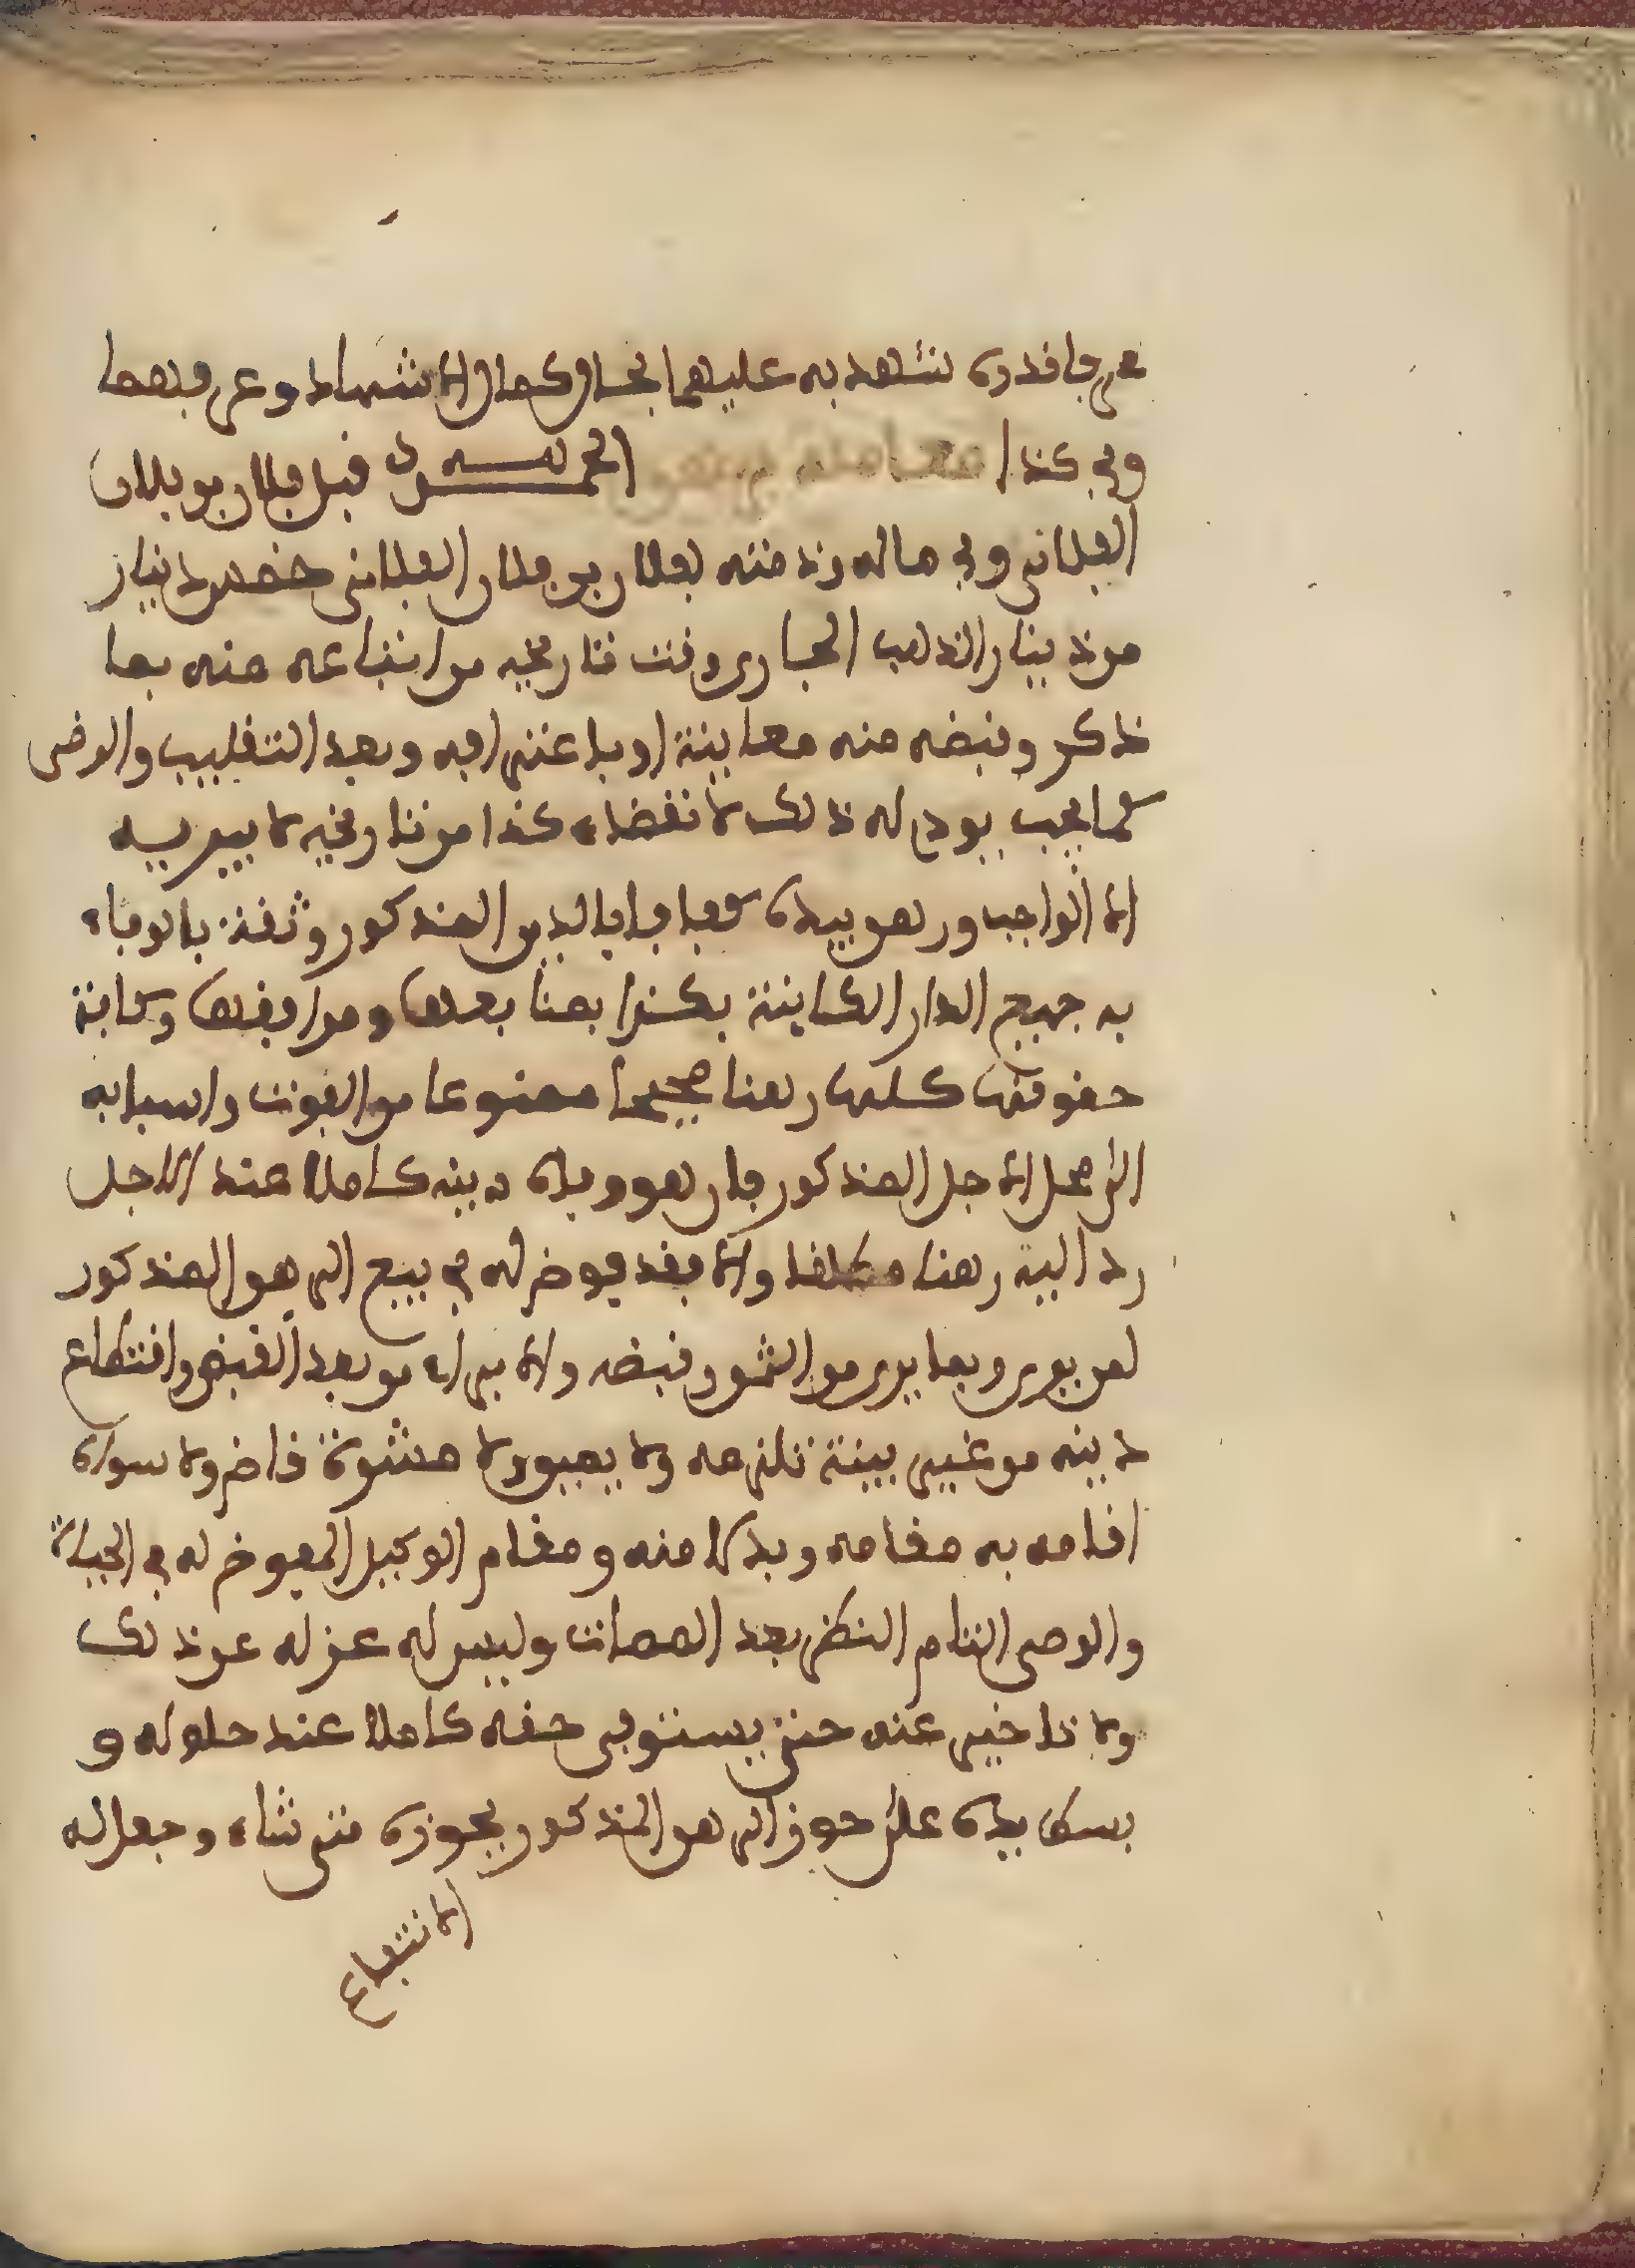 عرفا قدره شهد به عليهما بحال كمال الاشهاد وعرفهما
وفي كذا معاملة برهن الحمد لله قبل فلان بن فلان
الفلاني وفي ماله وذمته لفلان بن فلان الفلاني خمسون دينار
من دينار الذهب الجاري وقت تاريخه من ابتياعه منه بما
ذكر وقبضه منه معاينة او باعترافه وبعد التقليب والرضى
كما يجب يودي له ذلك لانقضاء كذا من تاريخه لا يبريه
الا الواجب ورهن بيده توثقا بالدين المذكور وثقة بالوفاء
به جميع الدار الكاينة بكذا بمنافعها ومرافقها وكافة
حقوقها كلها رهنا صحيحا ممنوعا من الفوت واسبابه
الى محل الاجل المذكور فان هو وفاه دينه كاملا عند الاجل
رد اليه رهنه مطلقا والا فقد فوض له في بيع الرهن المذكور
لمن يرى وبما يرى من الثمن وقبضه والابراء من بعد القبض واقتطاع
دينه من غير بينة تلزمه ولا يمين ولا مشورة قاض ولا سواه
اقامه به مقامه وبدلا منه ومقام الوكيل المفوض له في الحياة
والوصي التام النظر بعد الممات وليس له عزله عن ذلك
ولا تاخير عنه حتى يستوفي حقه كاملا عند حلوله و
بسط يده على حوز الرهن المذكور يحوزه متى شاء وجعل له
الانتفاع